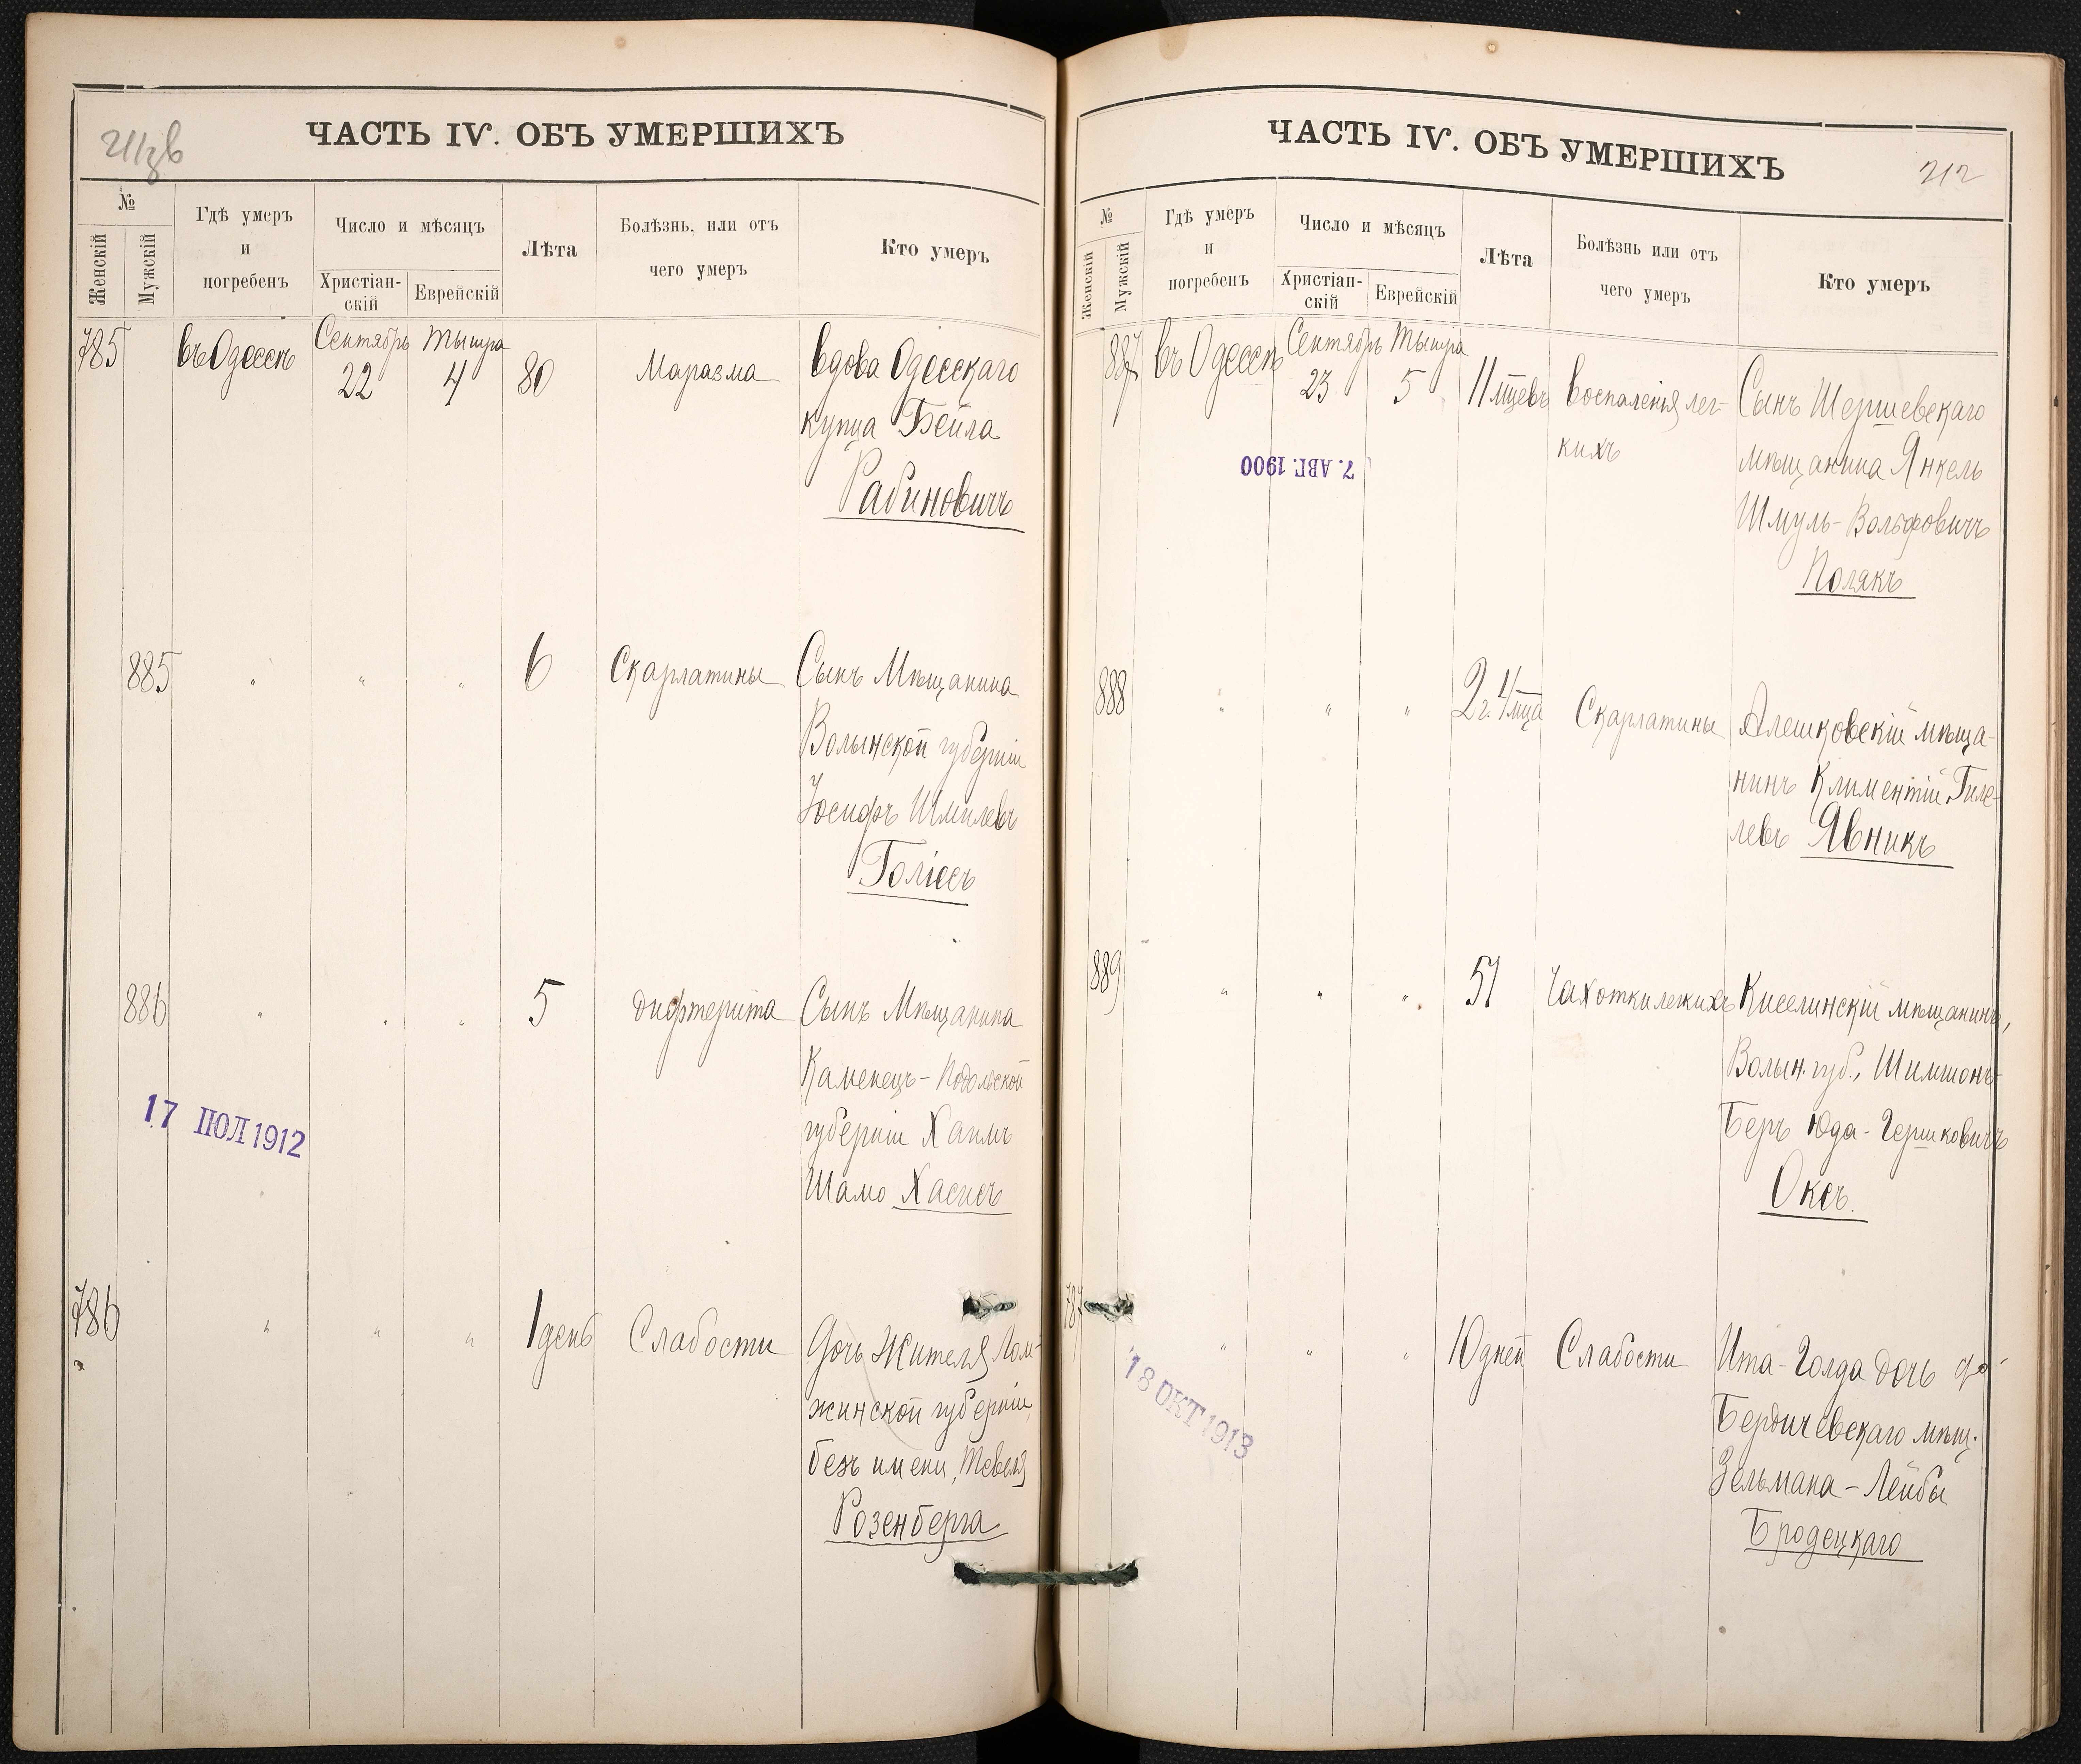 ЧАСТЬ IV. ОБЪ УМЕРШИХЪ
№
Женскій
Мужскій
Гдѣ умеръ
и
погребенъ
Число и мѣсяцъ
Христіан-
скій
Еврейскій
Лѣта
Болѣзнь, или отъ
чего умеръ
Кто умеръ
785 въ Одессѣ Сентябрь Тышра
22 4 80 Маразма вдова Одесскаго
купца Бейла
Рабиновичъ
885 " " " 6 Скарлатины Сынъ Мѣщанина
Волынской губерніи
Іосифъ Шмилевъ
Голіесъ
886 " " " 5 дифтерита Сынъ Мѣщанина
Каменецъ-Подольской
губерніи Хаимъ
Шамо Хасисъ
17 ІЮЛ 1912
786 " " " 1 день Слабости Дочь Жителя Лом-
жинской губерніи,
безъ имени, Тевеля
Розенберга
ЧАСТЬ IV. ОБЪ УМЕРШИХЪ
212
№
Женскій
Мужскій
Гдѣ умеръ
и
погребенъ
Число и мѣсяцъ
Христіан-
скій
Еврейскій
Лѣта
Болѣзнь или отъ
чего умеръ
Кто умеръ
887 въ Одессѣ Сентябрь Тышра
23 5 11 мцевъ Воспаленія лег-
кихъ
Сынъ Шершевскаго
мѣщанина Янкель
Шмуль-Вольфовичъ
Полякъ
7. АВГ. 1900
888 " " " 2 г. 4 мца Скарлатины Алешковскій мѣща-
нинъ Климентій Гиле-
левъ Явникъ
889 " " " 51 Чахотки легкихъ Киселинскій мѣщанинъ,
Волын. губ., Шимшонъ-
Беръ Юда-Гершковичъ
Оксъ.
787 " " " 10 дней Слабости Ита-Голда дочь
Бердичевскаго мѣщ.
Зельмана-Лейбы
Бродецкаго
18 ОКТ 1913